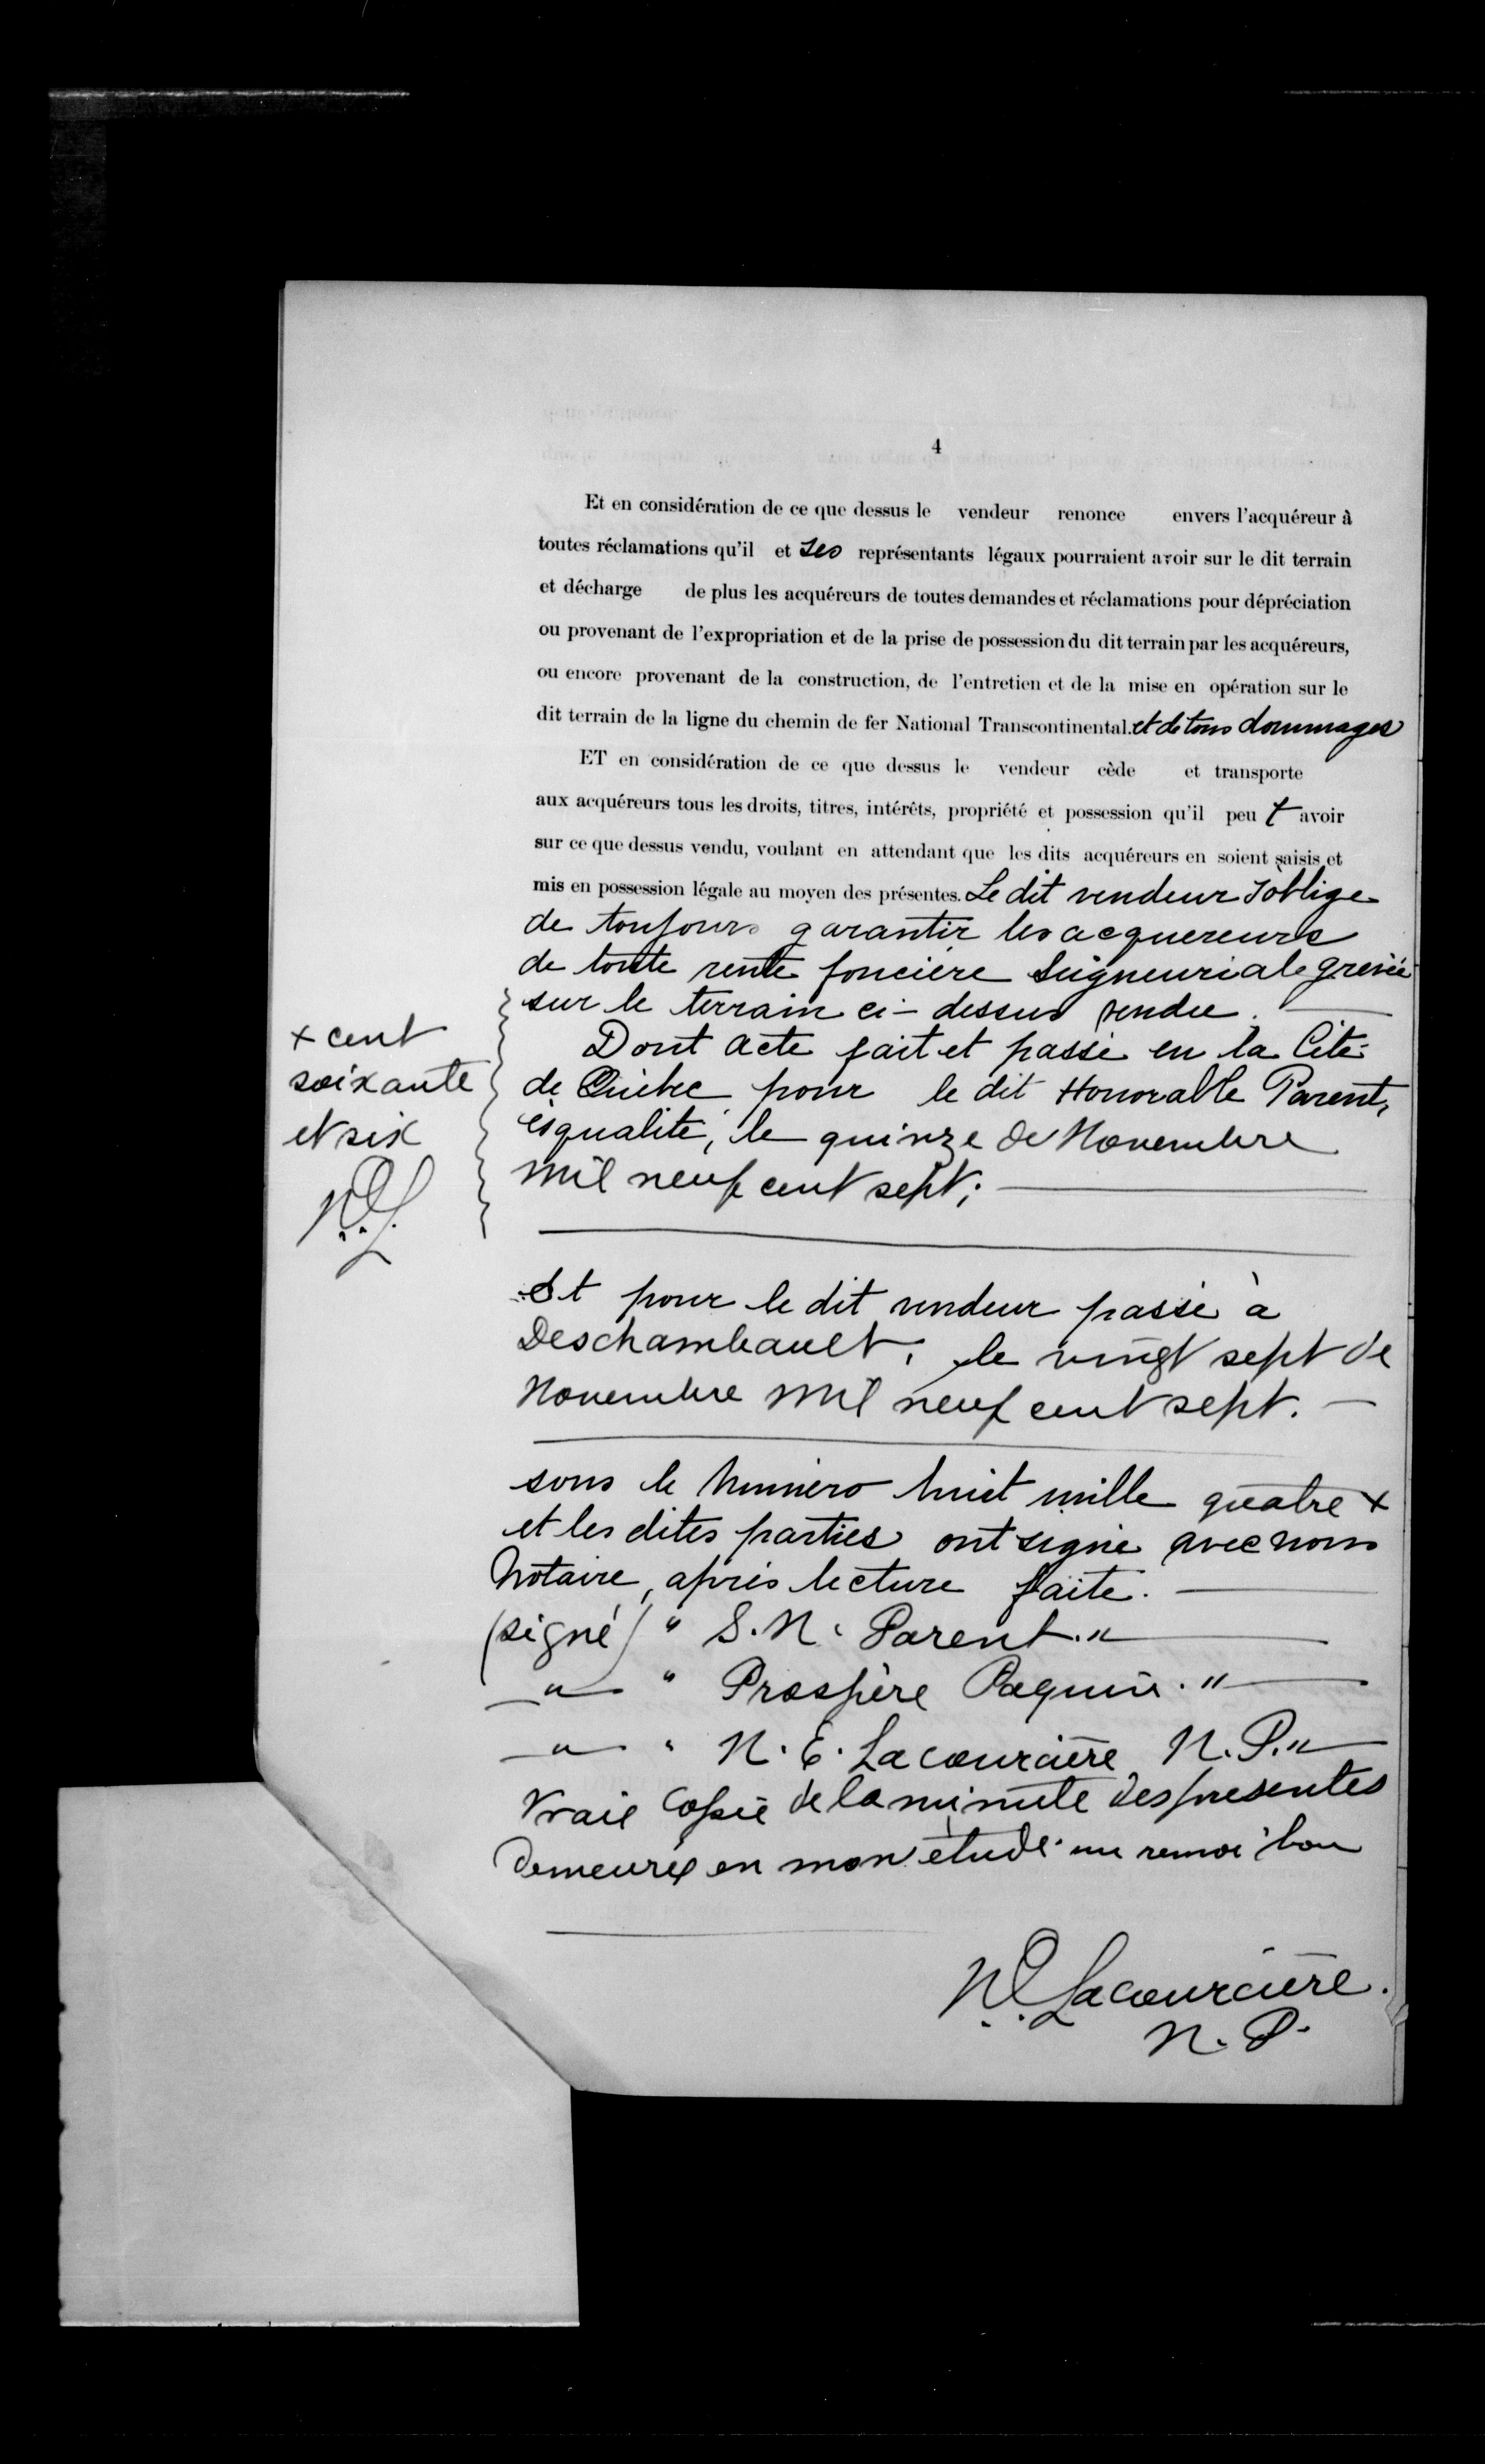 4
Et en considération de ce que dessus le vendeur renonce envers l'acquéreur à
toutes réclamations qu'il et ses représentants légaux pourraient avoir sur le dit terrain
et décharge de plus les acquéreurs de toutes demandes et réclamations pour dépréciation
ou provenant de l'expropriation et de la prise de possession du dit terrain par les acquéreurs,
ou encore provenant de la construction, de l'entretien et de la mise en opération sur le
dit terrain de la ligne du chemin de fer National Transcontinental. et de tous dommages
ET en considération de ce que dessus le vendeur cède et transporte
aux acquéreurs tous les droits, titres, intérêts, propriété et possession qu'il peut avoir
sur ce que dessus vendu, voulant en attendant que les dits acquéreurs en soient saisis et
mis en possession légale au moyen des présentes. Le dit vendeur s'oblige
de toujours garantir les acquereurs
de toute rente foncière Seigneuriale
sur le terrain ci-dessus vendu.
Dont acte fait et passé en la Cité
de Québec pour le dit Honorable Parent,
èsqualité, le quinze de Novembre
mil neuf cent sept;
+ cent
soixante
et six
N.E.L.
Et pour le dit vendeur passé à
Deschambault, le vingt sept de
Novembre mil neuf cent sept.
sous le numéro huit mille quatre +
et les dites parties ont signé avec nous
Notaire, après lecture faite.
(signé) " S. N. Parent "
" " Prospère Paquin. "
" " N. E. Lacourcière N. P. "
Vraie Copie de la minute des présentes
demeurée en mon étude. un renvoi bon
N.E. Lacourcière.
N. P.